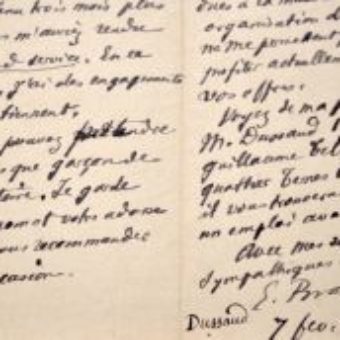 trois mois plus
m'auriez rendre
de service. En ce
j'ai des engagements
tiennent.
pouvez
que garçon de
toire. Je garde
votre adresse
vous recommander
occasion.
dues à la
organisation d
ne me permettent
profiter actuellement
vos offres.
Voyez de ma p
M. Dussaud
guillaume Tell
quartier Ternes
il vous trouvera
un emploi ava
Avec mes
Sympathiques
E. Bra
Dussaud 7 fev.